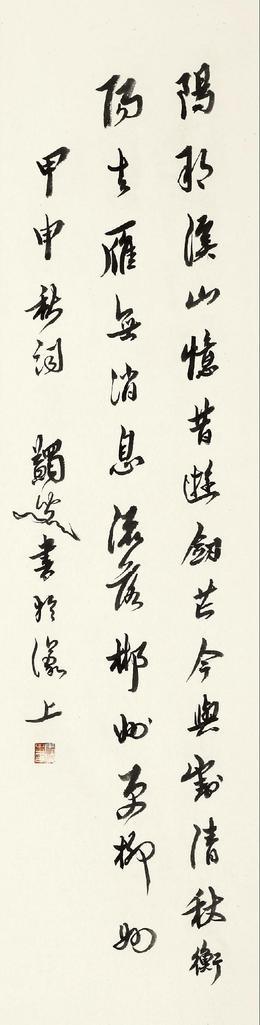 陽朔溪山憶昔遊劍芒今與對清秋衡
陽去雁無消息流落郴州更柳州
甲申秋詞 蠲叟書於濠上